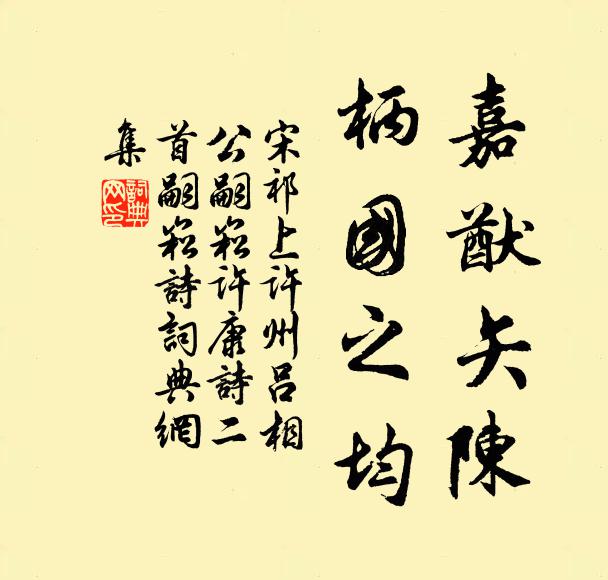 嘉猷矢陳
柄國之均
宋祁上許州呂相
公嗣崧許康詩二
首嗣崧詩詞典網
集
詞典網印